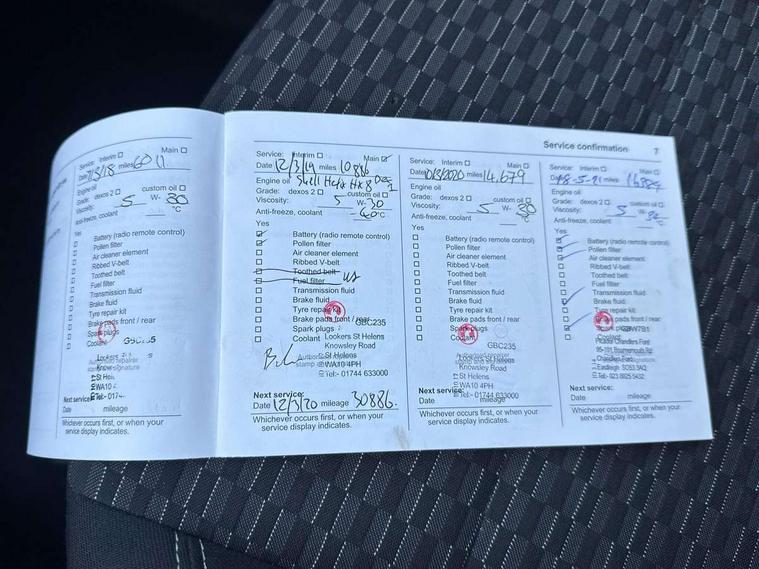 Service confirmation 7
Service: Interim ☐ Main ☐
Date 7/3/18 miles 6011
Engine oil
Grade: dexos 2 ☐ custom oil ☐
Viscosity: 5 W- 30
Anti-freeze, coolant °C
Yes
Battery (radio remote control)
Pollen filter
Air cleaner element
Ribbed V-belt
Toothed belt
Fuel filter
Transmission fluid
Brake fluid
Tyre repair kit
Brake pads front / rear
Spark plugs
Coolant
Lockers
St Hel
WA10 4
Tel:- 0174
Next service:
Date mileage
Whichever occurs first, or when your
service display indicates.
Service: Interim ☐ Main ☑
Date 12/3/19 miles 10886
Engine oil Shell Helix HX8
Grade: dexos 2 ☐ custom oil ☐
Viscosity: 5 W- 30
Anti-freeze, coolant -40 °C
Yes
Battery (radio remote control)
Pollen filter
Air cleaner element
Ribbed V-belt
Toothed belt
Fuel filter
Transmission fluid
Brake fluid
Tyre repair
Brake pads front / rear
GBC235
Spark plugs
Coolant
Lockers St Helens
Knowsley Road
St Helens
WA10 4PH
Tel:- 01744 633000
Next service:
Date 12/3/20 mileage 30886.
Whichever occurs first, or when your
service display indicates.
Service: Interim ☐ Main ☐
Date 10/3/2020 miles 14,679
Engine oil
Grade: dexos 2 ☐ custom oil ☐
Viscosity: 5 W- 30
Anti-freeze, coolant °C
Yes
Battery (radio remote control)
Pollen filter
Air cleaner element
Ribbed V-belt
Toothed belt
Fuel filter
Transmission fluid
Brake fluid
Tyre repair kit
Brake pads front / rear
Spark plugs
Coolant
GBC235
St Helens
Knowsley Road
St Helens
WA10 4PH
Tel:- 01744 633000
Next service:
Date mileage
Whichever occurs first, or when your
service display indicates.
Service: Interim ☐ Main ☐
Date 18-5-21 miles
Engine oil
Grade: dexos 2 ☐ custom oil ☐
Viscosity: 5 W- 30
Anti-freeze, coolant °C
Yes
Battery (radio remote control)
Pollen filter
Air cleaner element
Ribbed V-belt
Toothed belt
Fuel filter
Transmission fluid
Brake fluid
Tyre repair kit
pads front / rear
Chandlers Ford
Bournemouth Rd
Chandlers Ford
Eastleigh SO53 3AQ
Tel:- 023 8025 5432
Next service:
Date mileage
Whichever occurs first, or when your
service display indicates.